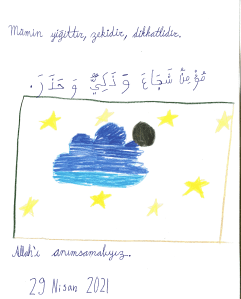 Mümin yiğittir, zekidir, dikkatlidir.
مُؤْمِنٌ شَجَاعَ وَ ذَكِيٌّ وَ حَذَرَ.
Allah'ı anımsamalıyız.
29 Nisan 2021